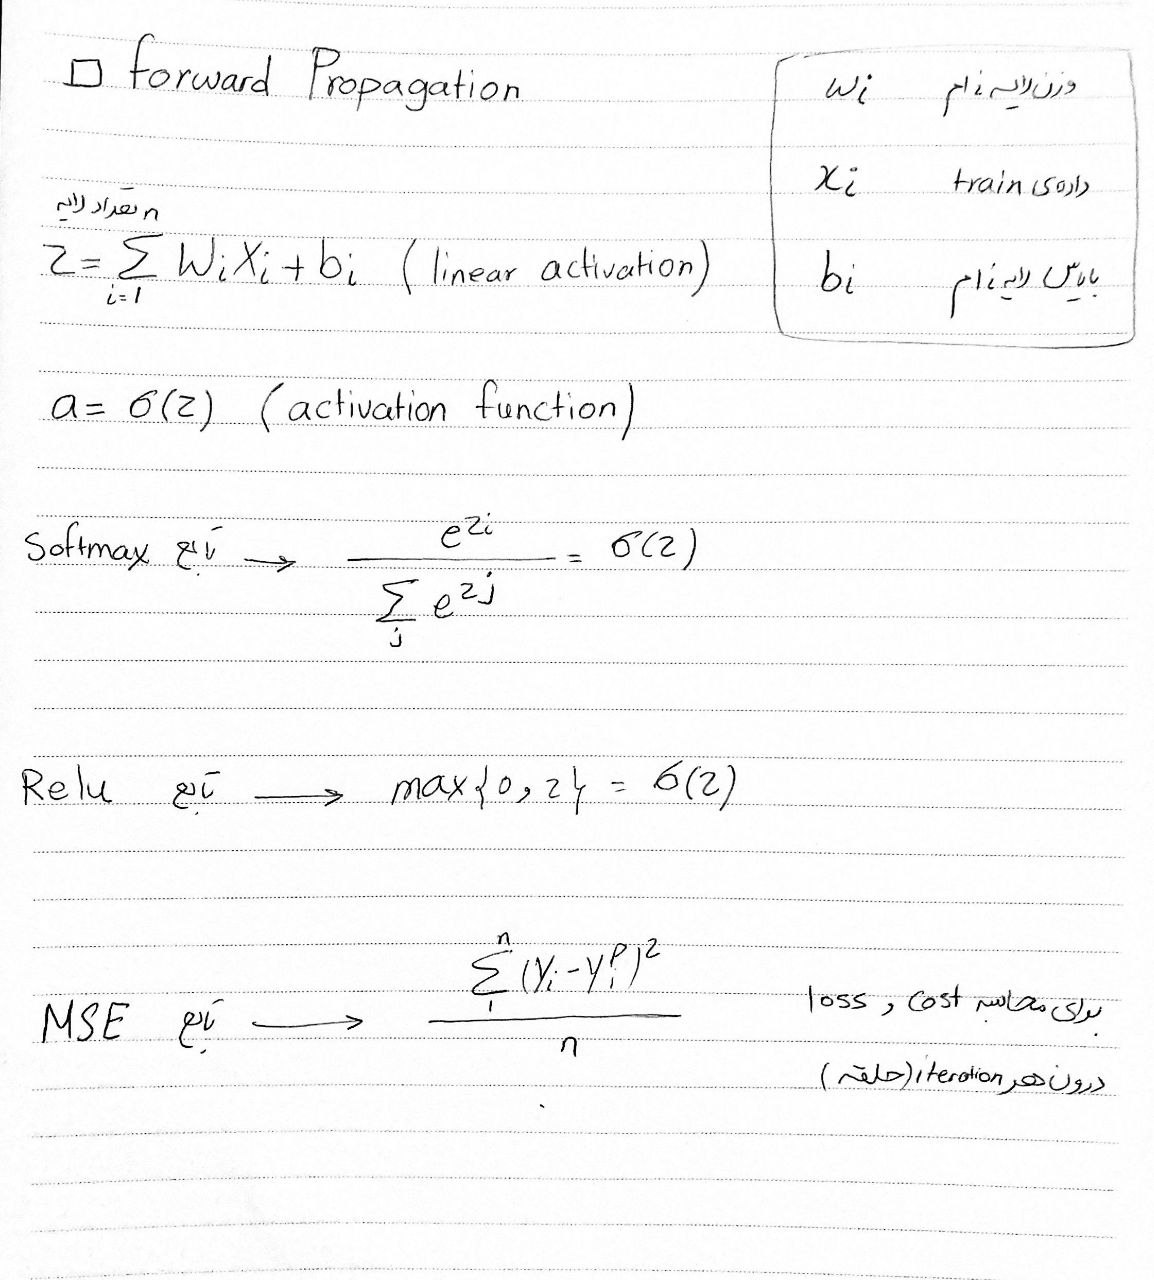 □ forward Propagation
wi وزن لایه i ام
xi داده‌ی train
bi بایاس لایه i ام
n تعداد لایه
z = Σ WiXi + bi (linear activation)
i=1
a = σ(z) (activation function)
Softmax تابع → e^zi / Σj e^zj = σ(z)
Relu تابع → max{0, z} = σ(z)
MSE تابع → Σ_1^n (yi - yi^p)^2 / n
برای محاسبه cost و loss
درون هر iteration (حلقه)